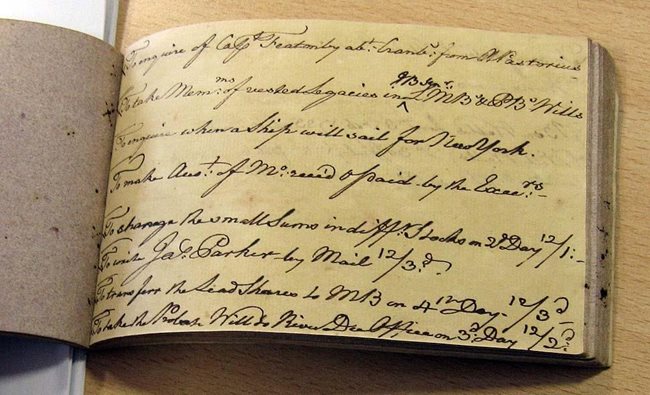 To enquire of Capt. Featonby abt. from A Pastorius
To take Memms. of vested Legacies in JB Senr. MB's & PB's Wills
To enquire when a Ship will sail for New York.
To make Acct. of Mo. recei'd & paid by the Execrs.
To change the small Sums in difft. Stocks on 2d. Day 12/1:-
To write Jas. Parker by Mail 12/3d.
To transferr the Lead Shares to MB on 4th Day 12/3d
To take the Probate Will to River Dee Office on 3d. Day 12/2d.